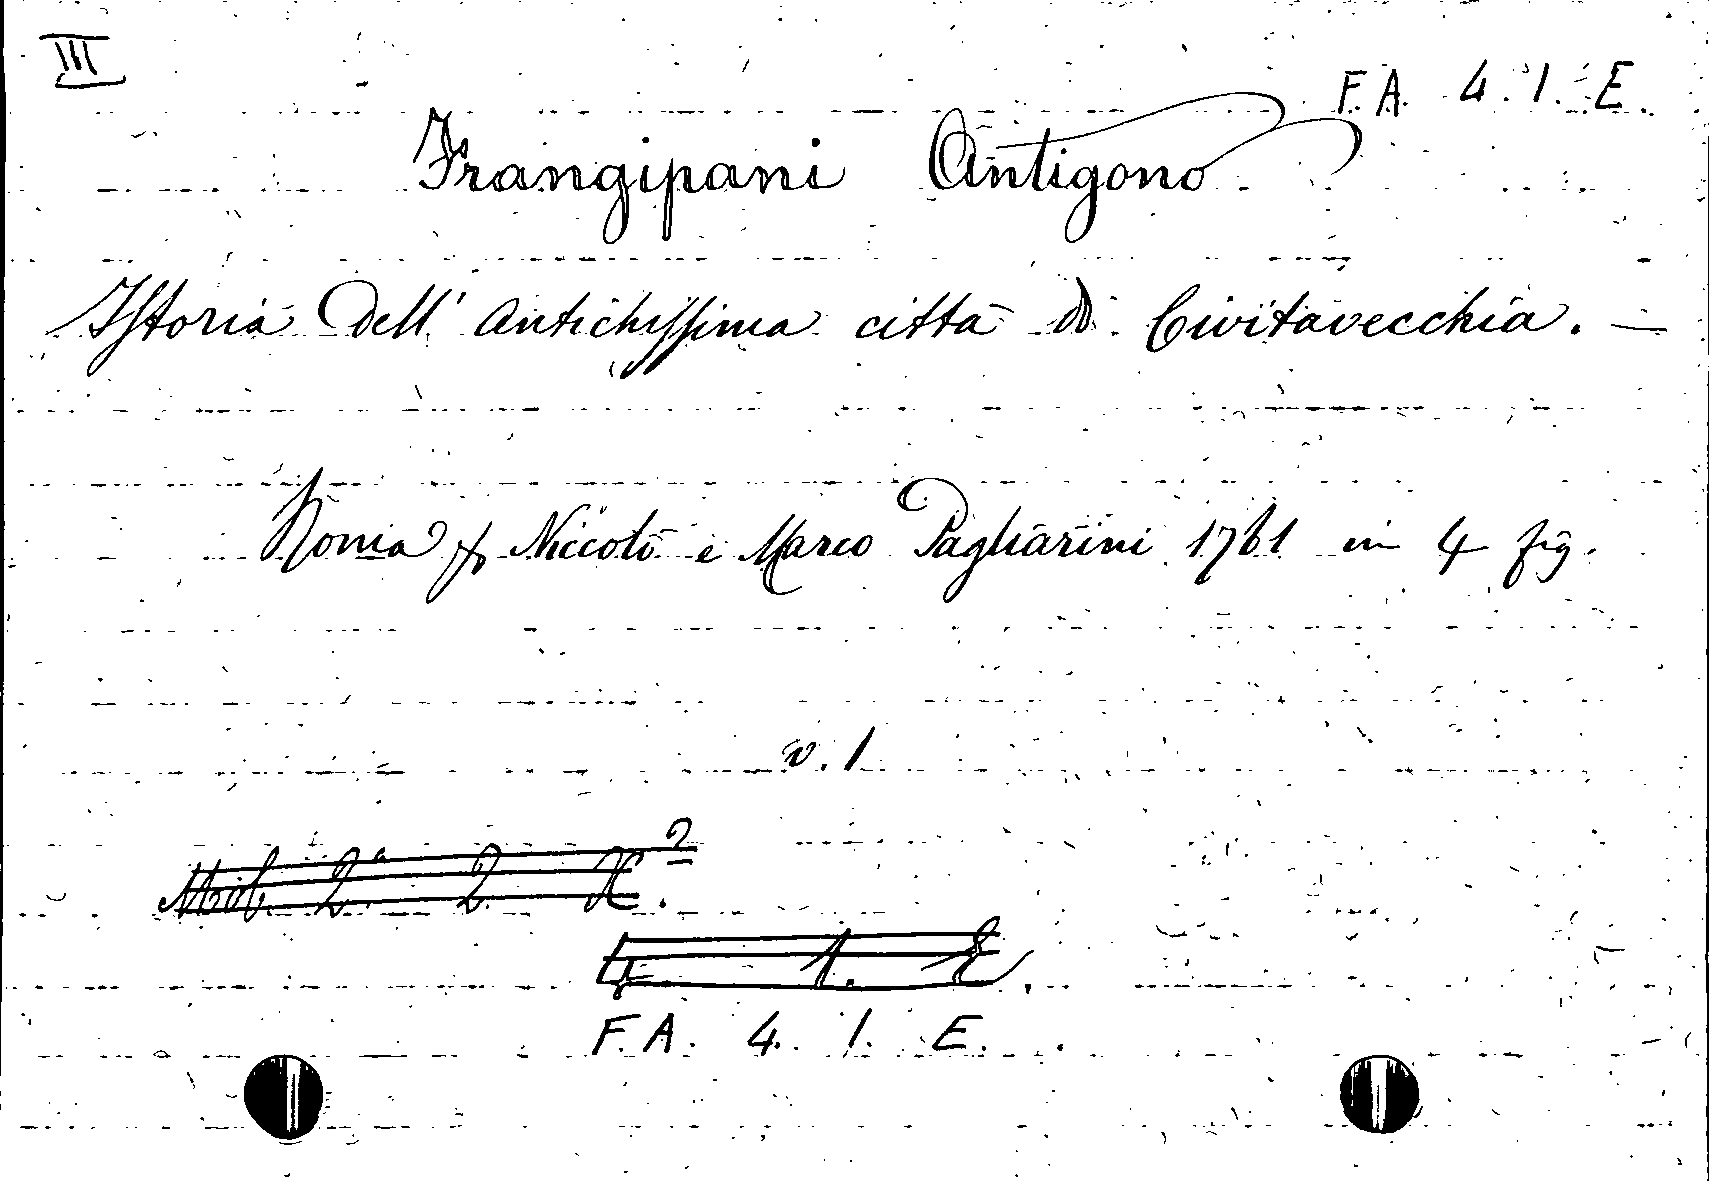 III
F. A. 4. 1. E.
Frangipani Antigono
Istoria dell' antichissima città di Civitavecchia. —
Roma Niccolò e Marco Pagliarini 1761 in 4 fig.
v. 1
Mob. 2ª 2 X 2.
4 1. E.
F. A. 4. 1. E.